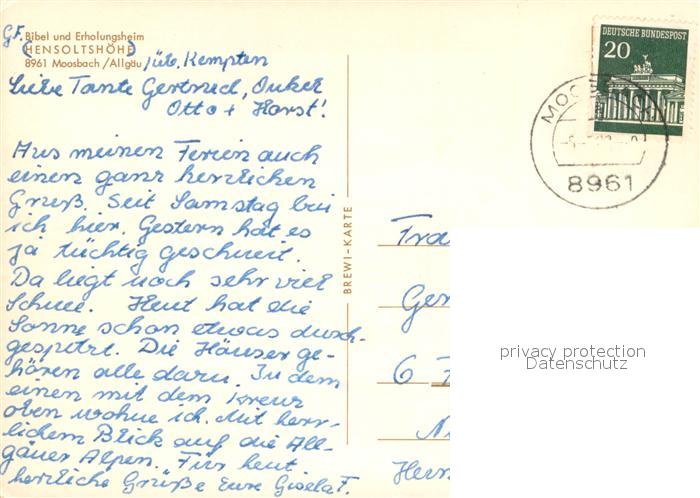 GF.
Bibel und Erholungsheim
(HENSOLTSHÖHE)
8961 Moosbach/Allgäu / üb. Kempten
Liebe Tante Gertrud, Onkel
Otto + Horst!
Aus meinen Ferien auch
einen ganz herzlichen
Gruß. Seit Samstag bin
ich hier. Gestern hat es
ja tüchtig geschneit.
Da liegt noch sehr viel
Schnee. Heut hat die
Sonne schon etwas durch-
gespitzt. Die Häuser ge-
hören alle dazu. In dem
einen mit dem Kreuz
oben wohne ich. Mit herr-
lichem Blick auf die All-
gäuer Alpen. Für heut
herzliche Grüße Eure Gisela F.
BREWI-KARTE
DEUTSCHE BUNDESPOST
20
8961
Fra
Ger
6
privacy protection
Datenschutz